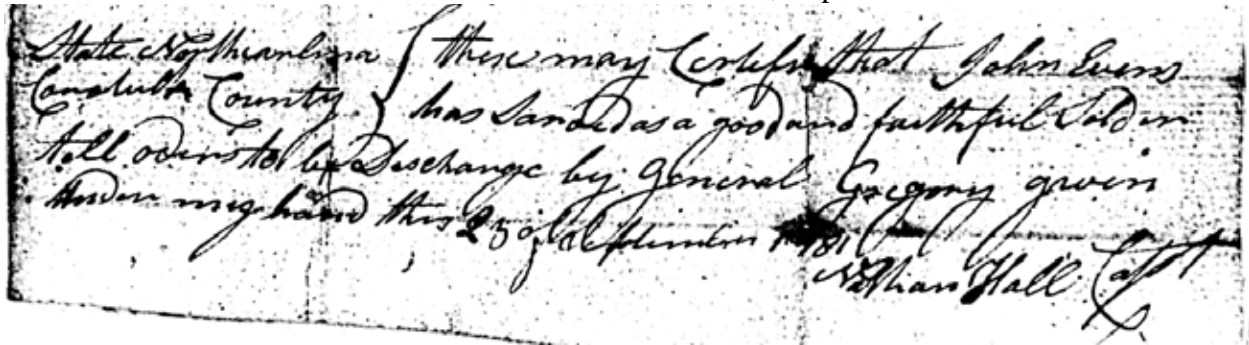 State Northcarlina { these may Certefy that John Evens
County } has Sarved as a good and faithful Soldier
tell orders to be Deschange by General Gregory given
Under my hand this 25 of September 1781
Nathan Hall Capt